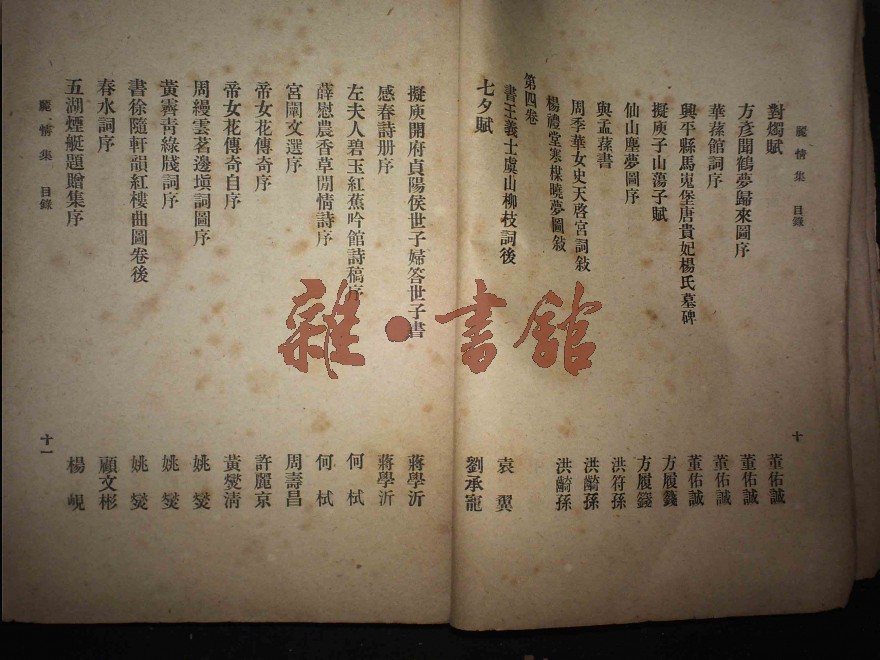 麗情集 目錄
十
對燭賦 董佑誠
方彥聞鶴夢歸來圖序 董佑誠
華蓀館詞序 董佑誠
興平縣馬嵬堡唐貴妃楊氏墓碑 董佑誠
擬庾子山蕩子賦 方履籛
仙山塵夢圖序 方履籛
與孟蓀書 洪符孫
周季華女史天啓宮詞敍 洪齮孫
楊禮堂寒楳曉夢圖敍 洪齮孫
第四卷
書王義士虞山柳枝詞後 袁翼
七夕賦 劉承寵
擬庾開府貞陽侯世子婦答世子書 蔣學沂
感春詩册序 蔣學沂
左夫人碧玉紅蕉吟館詩稿序 何栻
薛慰農香草閒情詩序 何栻
宮閨文選序 周壽昌
帝女花傳奇序 許麗京
帝女花傳奇自序 黃燮清
周縵雲茗邊塡詞圖序 姚燮
黃霽靑綠牋詞序 姚燮
書徐隨軒韻紅樓曲圖卷後 姚燮
春水詞序 顧文彬
五湖煙艇題贈集序 楊峴
麗情集 目錄
十一
雜·書館